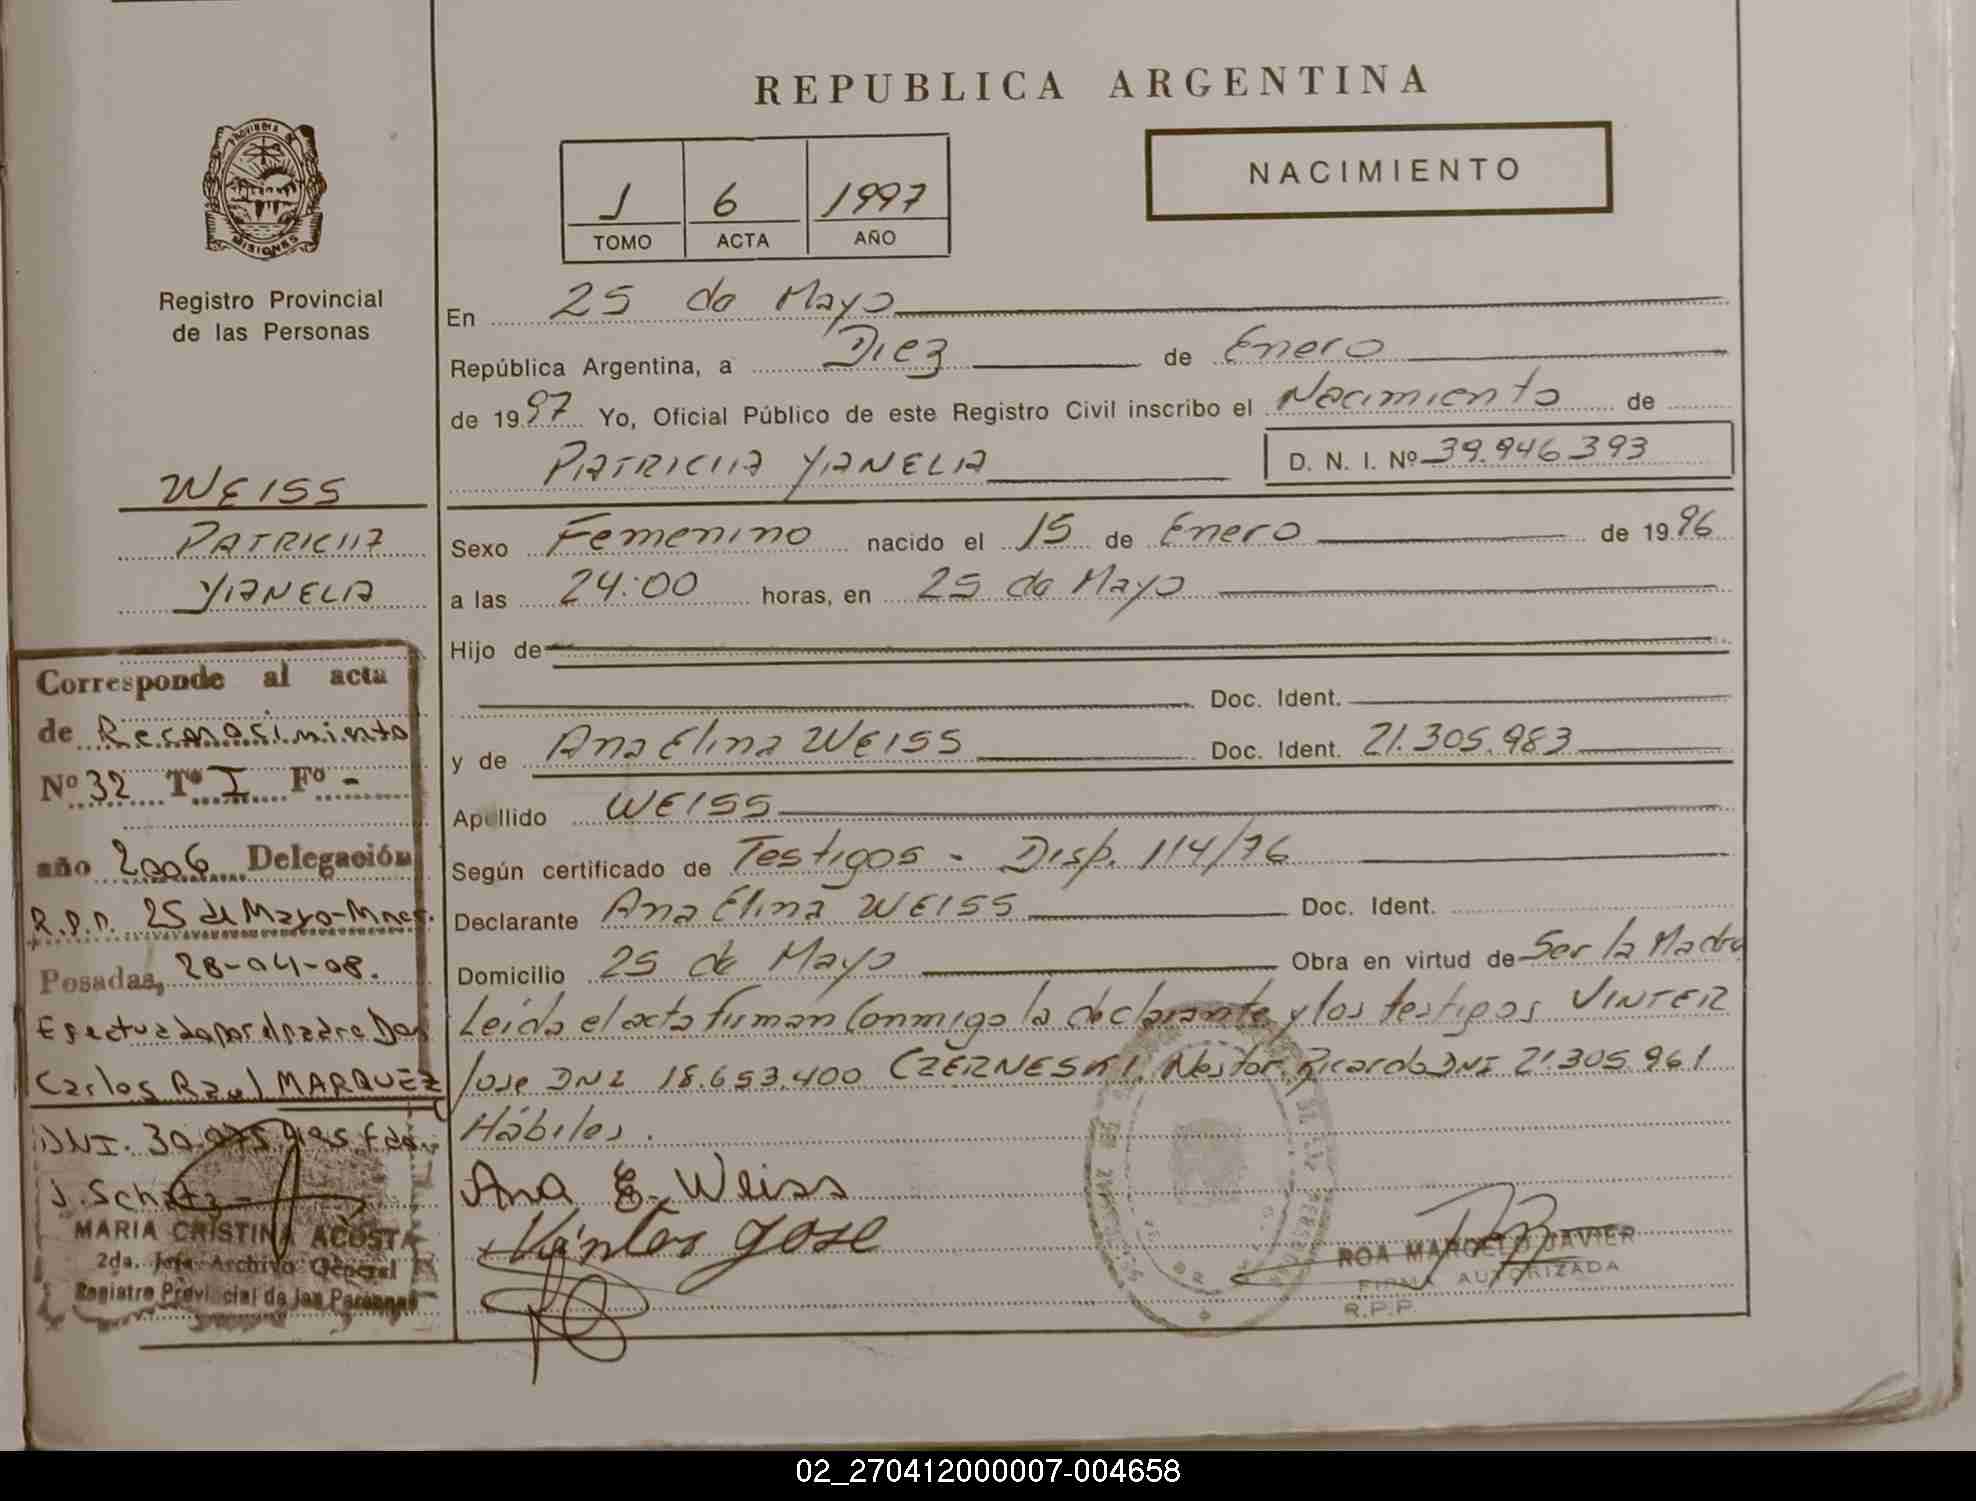 REPUBLICA ARGENTINA
PROVINCIA DE
MISIONES
Registro Provincial
de las Personas
1 6 1997
TOMO ACTA AÑO
NACIMIENTO
En 25 de Mayo
República Argentina, a Diez de Enero
de 1997 Yo, Oficial Público de este Registro Civil inscribo el Nacimiento de
PATRICIA YANELIA
D. N. I. Nº 39.946.393
WEISS
PATRICIA
YANELIA
Sexo Femenino nacido el 15 de Enero de 1996
a las 24:00 horas, en 25 de Mayo
Hijo de
Doc. Ident.
y de Ana Elina WEISS Doc. Ident. 21.305.983
Apellido WEISS
Según certificado de Testigos - Disp. 114/76
Declarante Ana Elina WEISS Doc. Ident.
Domicilio 25 de Mayo Obra en virtud de Ser la Madre
Leída el acta firman conmigo la declarante y los testigos VINTER
Jose DNI 18.653.400 CZERNESKI, Nestor Ricardo DNI 21.305.961
Hábiles.
Ana E. Weiss
Jose
ROA MARCELO JAVIER
FIRMA AUTORIZADA
R.P.P.
Corresponde al acta
de Reconosimiento
Nº 32 Tº I Fº -
año 2006 Delegación
R.P.P. 25 de Mayo-Mnes.
Posadas, 28-04-08.
Efectuada por el padre Don
Carlos Raul MARQUEZ
DNI. fdo.
J. Schatz
MARIA CRISTINA ACOSTA
2da. Jefa Archivo General
Registro Provincial de las Personas
02_270412000007-004658